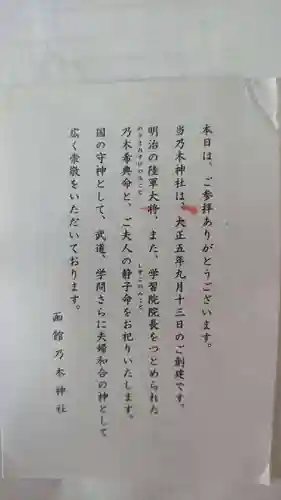 本日は、ご参拝ありがとうございます。
当乃木神社は、大正五年九月十三日のご創建です。
明治の陸軍大将、また、学習院院長をつとめられた
のぎまれすけのみこと
しずこのみこと
乃木希典命と、ご夫人の静子命をお祀りいたします。
国の守神として、武道、学問さらに夫婦和合の神として
広く崇敬をいただいております。
函館乃木神社